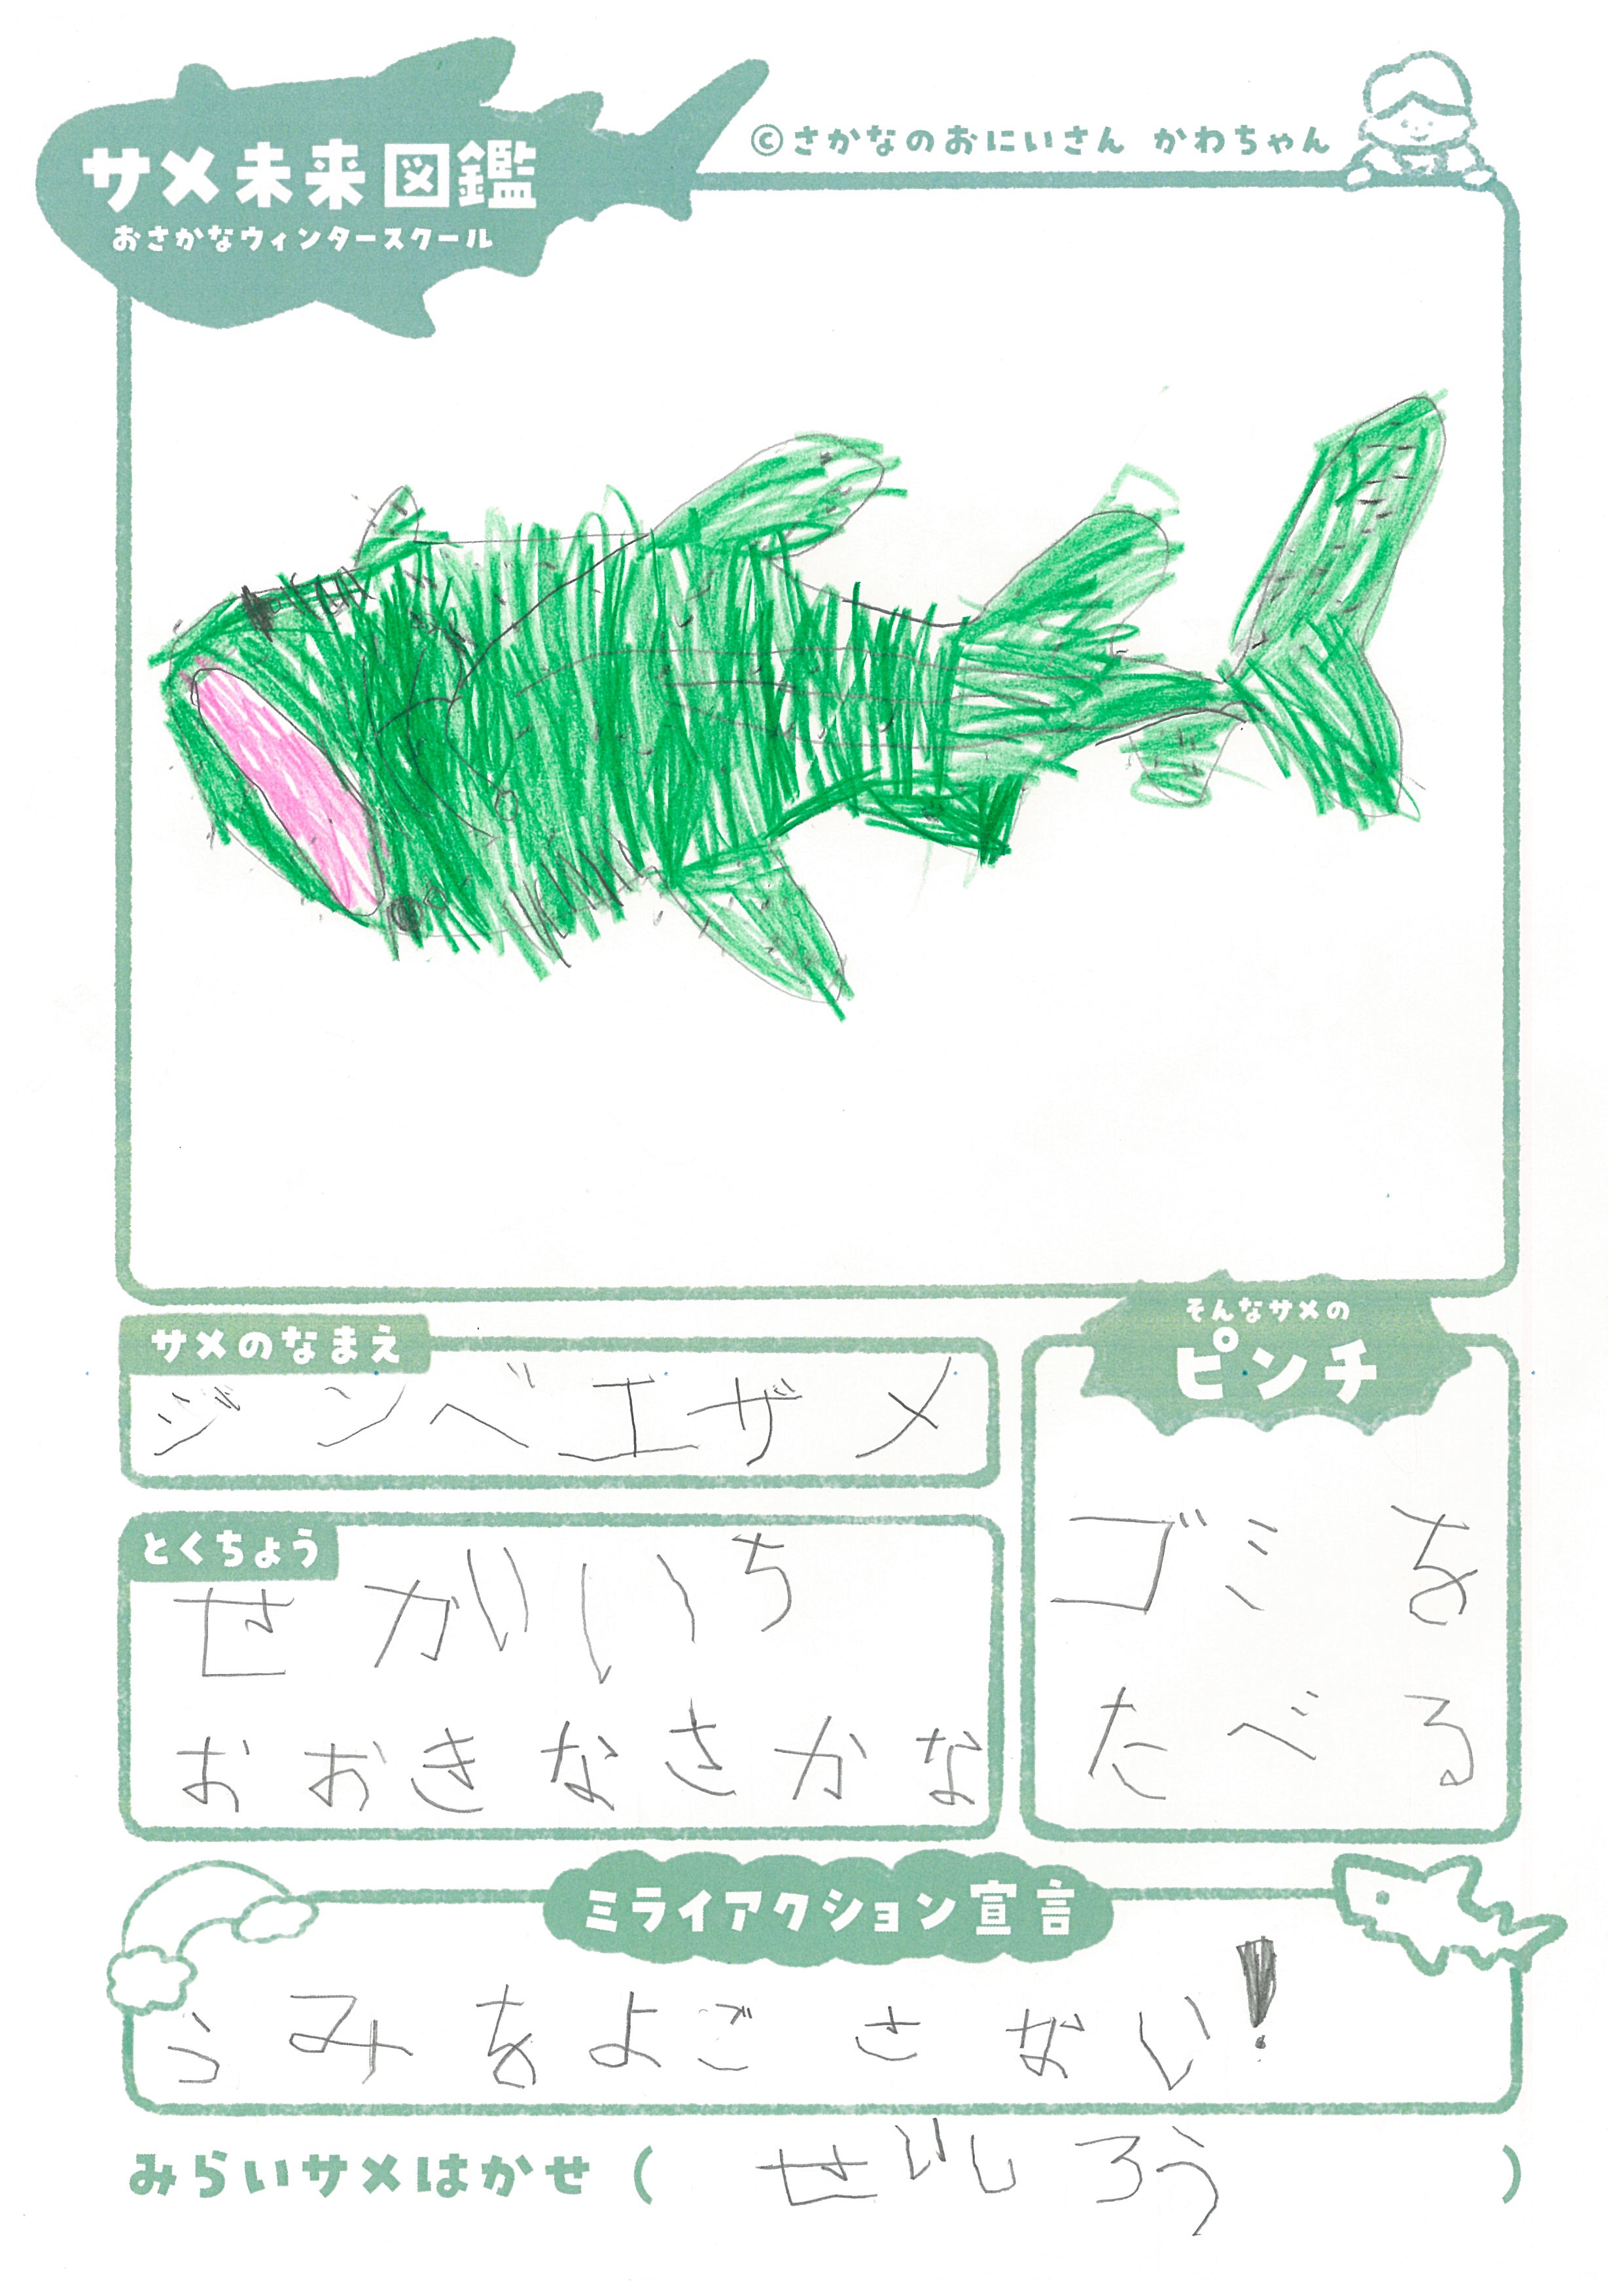 サメ未来図鑑
おさかなウィンタースクール
©さかなのおにいさん かわちゃん
サメのなまえ
ジンベエザメ
とくちょう
せかいいち
おおきなさかな
そんなサメの
ピンチ
ゴミを
たべる
ミライアクション宣言
うみをよごさない!
みらいサメはかせ ( せいしろう )